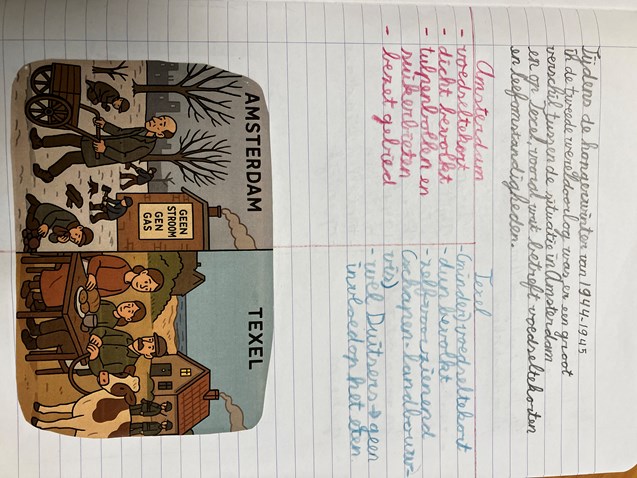 Tijdens de hongerwinter van 1944-1945
in de tweede wereldoorlog was er een groot
verschil tussen de situatie in Amsterdam
en op Texel, vooral wat betreft voedseltekorten
en leefomstandigheden.
Amsterdam
- voedseltekort
- dicht bevolkt
- tulpenbollen en
suikerbieten
- bezet gebied
Texel
- (minder) voedseltekort
- dun bevolkt
- zelfvoorzienend
(schapen-landbouw-
vis)
- wel Duitsers → geen
invloed op het eten
AMSTERDAM
GEEN
STROOM
GEN
GAS
TEXEL